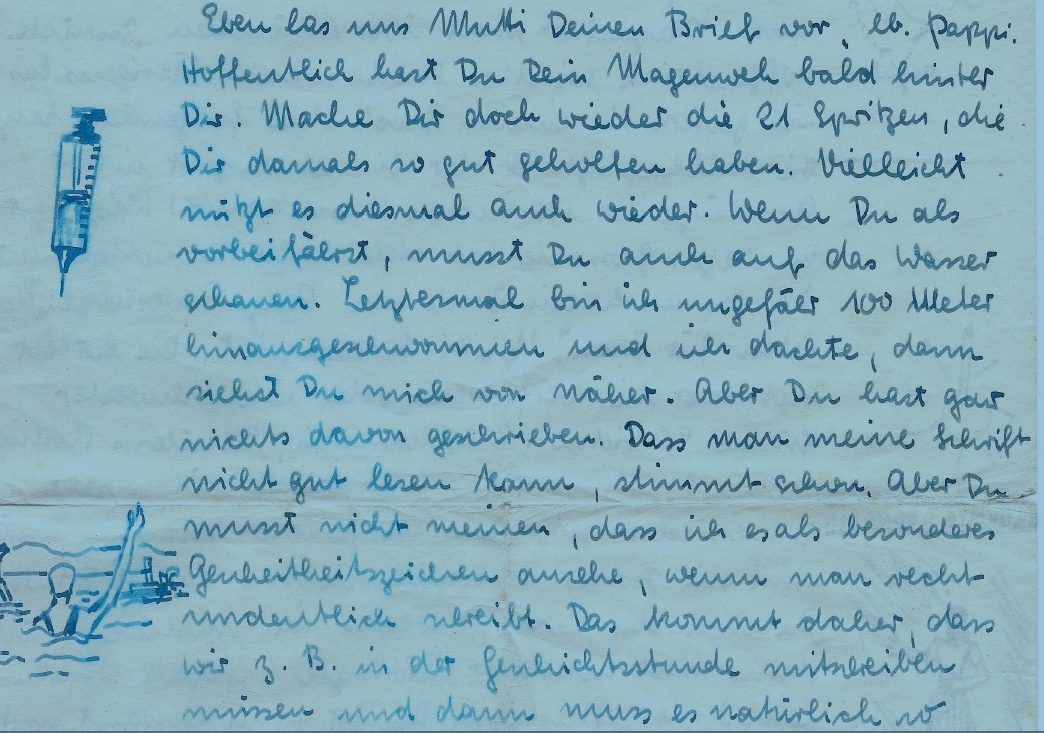 Eben las uns Mutti Deinen Brief vor, lb. Pappi.
Hoffentlich hast Du Dein Magenweh bald hinter
Dir. Mache Dir doch wieder die 21 Spritzen, die
Dir damals so gut geholfen haben. Vielleicht
nützt es diesmal auch wieder. Wenn Du als
vorbeifährst, musst Du auch auf das Wasser
schauen. Letztesmal bin ich ungefäer 100 Meter
hinausgeschwommen und ich dachte, dann
siehst Du mich von näher. Aber Du hast gar
nichts davon geschrieben. Dass man meine Schrift
nicht gut lesen kann, stimmt schon. Aber Du
musst nicht meinen, dass ich es als besonderes
ansehe, wenn man recht
undeutlich schreibt. Das kommt daher, dass
wir z. B. in der Geschichtsstunde mitschreiben
müssen und dann muss es natürlich so